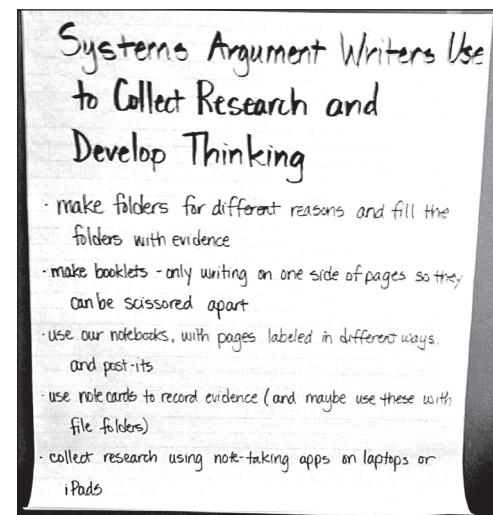 Systems Argument Writers Use
to Collect Research and
Develop Thinking
· make folders for different reasons and fill the
folders with evidence
· make booklets - only writing on one side of pages so they
can be scissored apart
· use our notebooks, with pages labeled in different ways,
and post-its
· use note cards to record evidence (and maybe use these with
file folders)
· collect research using note-taking apps on laptops or
iPads